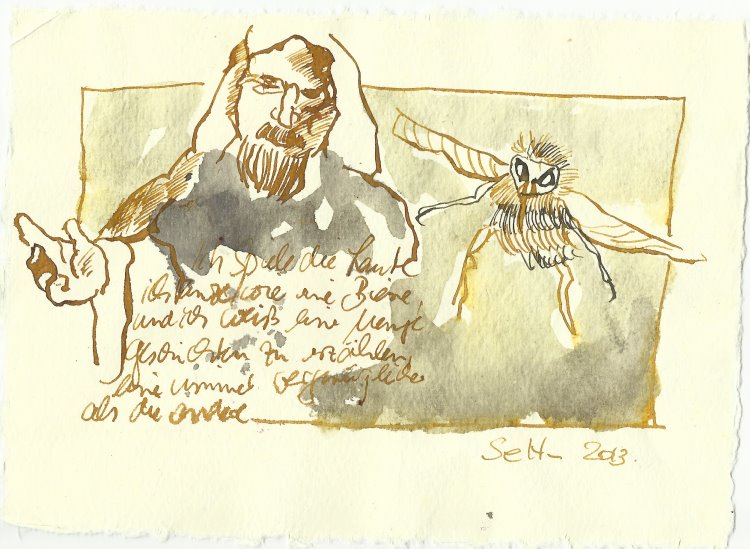 Ich spiele die Laute
ich singe wie eine Biene,
und ich weiß eine Menge
Geschichten zu erzählen,
eine immer vergnüglicher
als die andere
2013.